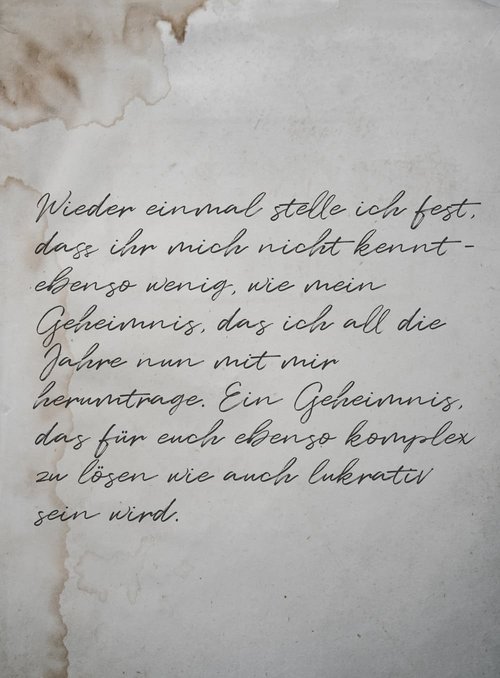 Wieder einmal stelle ich fest,
dass ihr mich nicht kennt -
ebenso wenig, wie mein
Geheimnis, das ich all die
Jahre nun mit mir
herumtrage. Ein Geheimnis,
das für euch ebenso komplex
zu lösen wie auch lukrativ
sein wird.